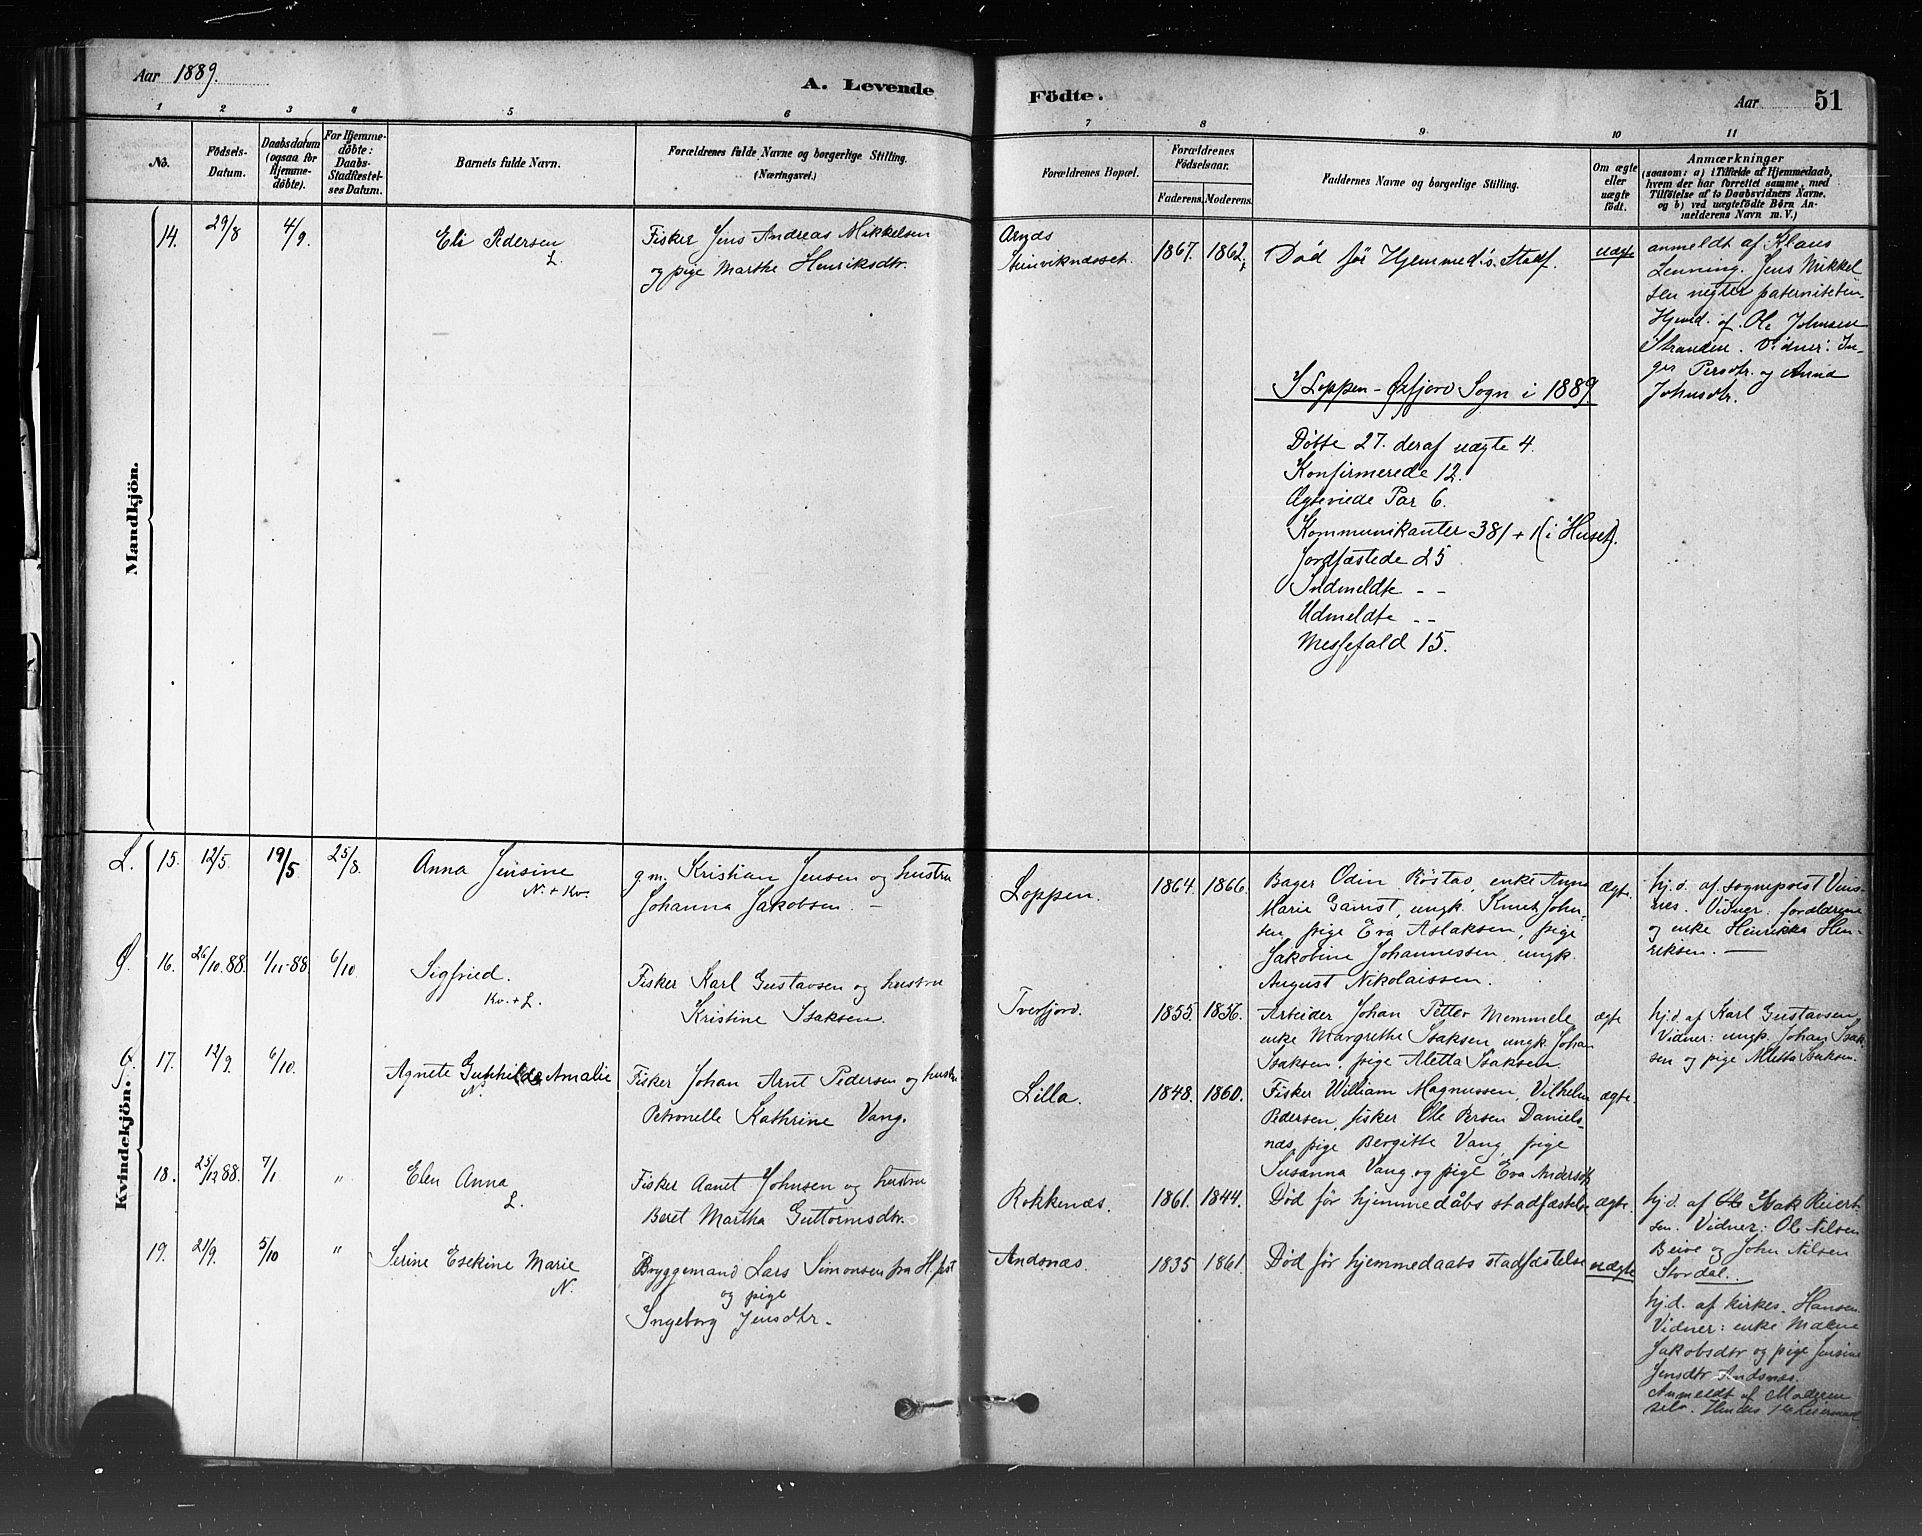 Aar 1889.
A. Levende
Födte.
Aar 51
1 2 3 4 5 6 7 8 9 10 11
No.
Födsels-Datum.
Daabsdatum (ogsaa for Hjemme-döbte).
For Hjemme-döbte: Daabs-Stadfæstel-ses Datum.
Barnets fulde Navn.
Forældrenes fulde Navne og borgerlige Stilling.
(Næringsvei.)
Forældrenes Bopæl.
Forældrenes Födselsaar.
Faderens. Moderens.
Faddernes Navne og borgerlige Stilling.
Om ægte eller uægte födt.
Anmærkninger
(saasom: a) i Tilfælde af Hjemmedaab,
hvem der har forrettet samme, med
Tilföielse af to Daabsvidners Navne,
og b) ved uægtefödte Börn An-
melderens Navn m. V.)
Mandkjön.
14. 29/8 4/9.
Eli Pedersen
L.
Fisker Jens Andreas Mikkelsen
og pige Marthe Henriksdtr.
1867. 1862.
Död før Hjemmed's. Stadf.
uægte
anmeldt af Klaus
Lenning. Jens Mikkel
sen negter paterniteten.
Hjemd. af Ole Johnsen
Stranden. Vidner: In-
ger Persdtr. og Anna
Johnsdtr.
I Loppen-Øxfjord Sogn i 1889.
Døbte 27. deraf uægte 4.
Konfirmerede 12.
Ægteviede Par 6.
Kommunikanter 381 + 1 (i Huset).
Jordfæstede 25.
Indmeldte - -
Udmeldte - -
Messefald 15.
Kvindekjön.
L. 15. 12/5 19/5 25/8.
Anna Jensine
N. + Kv.
g.m. Kristian Jensen og hustru
Johanna Jakobsen. -
Loppen.
1864. 1866.
Bager Odin Røstad, enke Anna
Marie Gamst, ungk. Knut John-
sen, pige Eva Aslaksen, pige
Jakobine Johannessen, ungk.
August Nikolaissen.
ægte.
hj.d. af sogneprest Vins-
nes. Vidner: forældrene
og enke Henrikka Hen-
riksen. -
Ø. 16. 26/10.88. 1/11-88. 6/10.
Sigfried.
Kv. + L.
Fisker Karl Gustavsen og hustru
Kristine Isaksen.
Tverfjord.
1855. 1856.
Arbeider Johan Petter Memmele
enke Margrethe Isaksen ungk. Johan
Isaksen, pige Aletta Isaksen.
ægte
hj.d. af Karl Gustavsen
Vidner: ungk. Johan Isak-
sen og pige Aletta Isaksen.
Ø. 17. 12/9. 6/10.
Agnete Gunhilde Amalie
N.
Fisker Johan Arnt Pedersen og hustru
Petronelle Kathrine Vang.
Lilla.
1848. 1860.
Fisker William Magnussen, Vilhelm
Pedersen, fisker Ole Persen Daniels-
næs, pige Bergitte Vang, pige
Susanna Vang og pige Eva Andersdtr
ægte.
18. 25/12 88. 7/1 "
Elen Anna
L.
Fisker Aanet Johnsen og hustru
Beret Martha Guttormsdtr.
Rokkenæs.
1861. 1844.
Død før hjemmedåbs stadfæstelse
ægte.
hj.d. af Isak Reiert-
sen. Vidner: Ole Nilsen
Beive og John Nilsen
Stordal.
19. 21/9. 5/10 "
Serine Esekine Marie
N.
Bryggemand Lars Simonsen fra H.fest
og pige
Ingeborg Jensdtr.
Andsnæs.
1835 1861.
Død før hjemmedaabs stadfæstelse
uægte
hj.d. af kirkes. Hansen.
Vidner: enke Malene
Jakobsdtr og pige Jensine
Jensdtr Andsnæs.
Anmeldt af Moderen
selv.